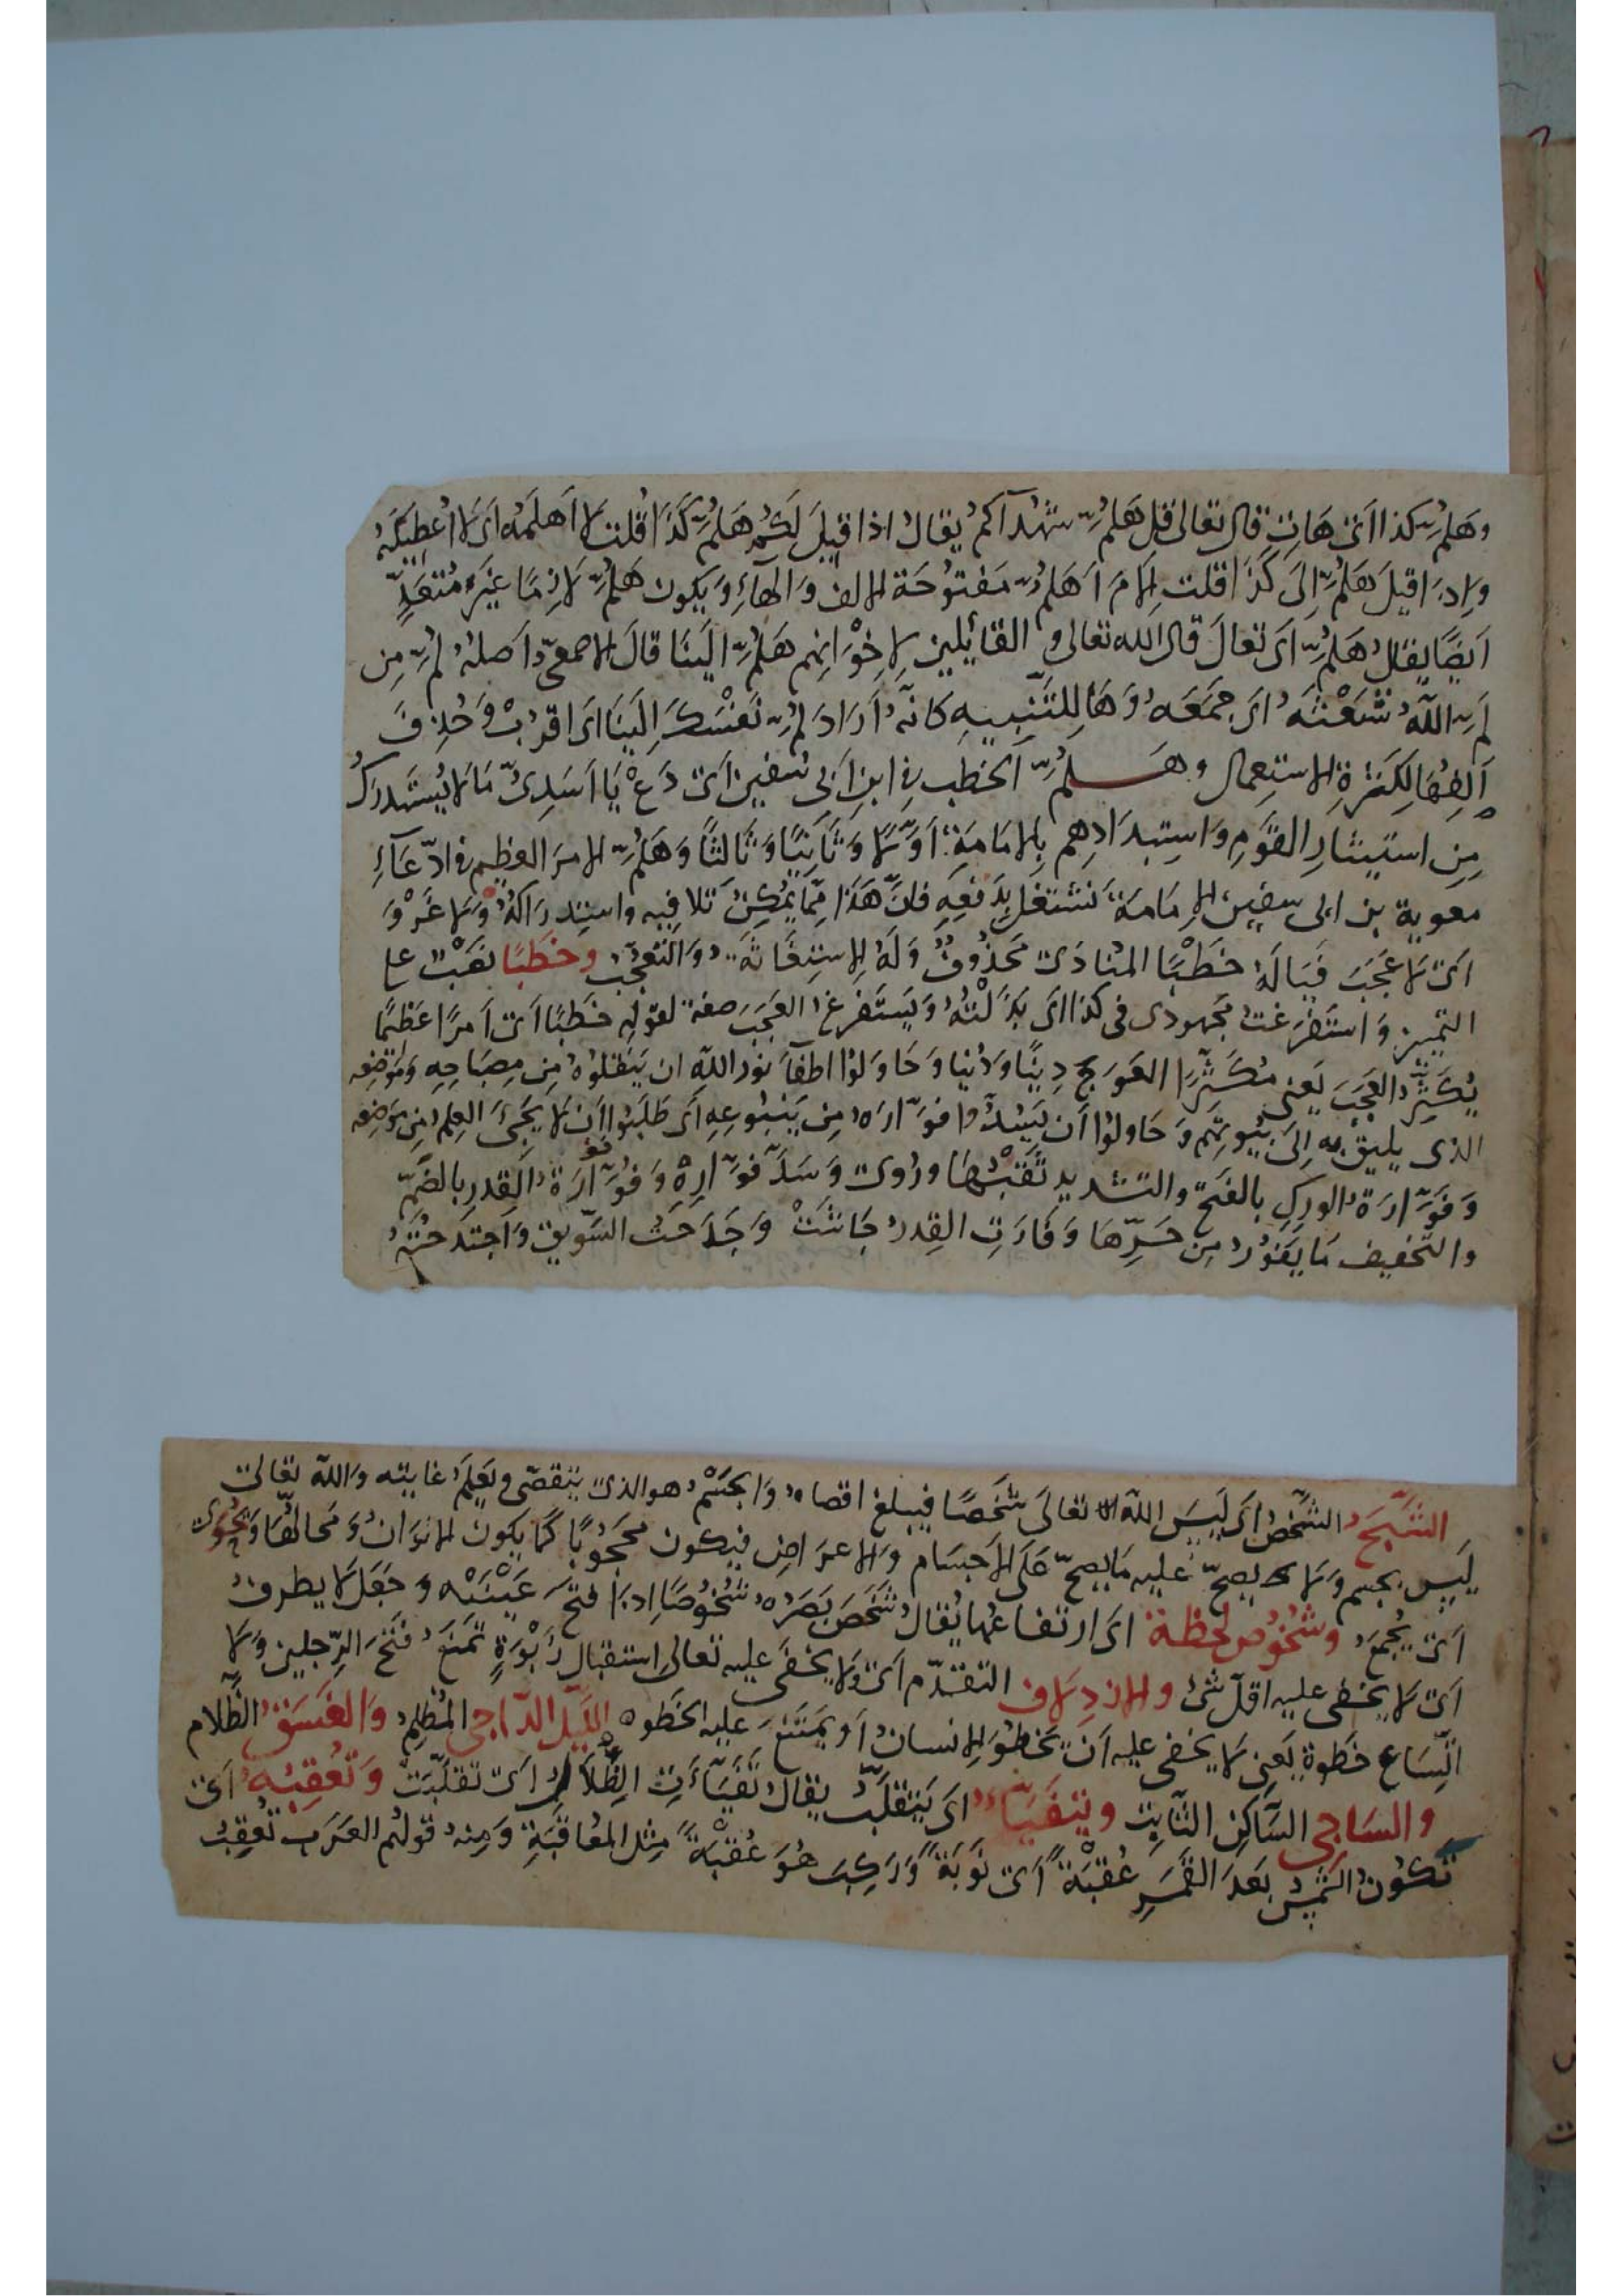 وهَلمَّ كذا اَىْ هَاتِ قال تعالى قل هَلمَّ شهدآكم يقالُ اذا قيلَ لكُم هَلمَّ كَذَا قلتَ لا اَهلمّه اى لا اُعطيكَهُ
وَاِذَا قيلَ هَلمَّ اِلى كَذَا قلت اِلامَ اَهَلمُّ مَفتوُحَة الالف وَالهَآءِ وَيكون هَلمَّ لازِمًا غيَرَ مُتعَدٍّ
اَيضًا يقالُ هَلمَّ اَى تعَالَ قال الله تعالى والقائِلين لاِخْوَانِهم هَلمَّ اِلَينَا قالَ الاصمعىّ اَصلهُ لُمَّ مِن
لَمَّ اللهُ شَعْثَهُ اى جَمَعَهُ وَهَا لِلتَّنبيهِ كانّهُ اَرَادَ لُمَّ نَفسَكَ اِلَينَا اى اقرُبْ وَحُذِفَ
اَلِفُهَا لِكَثرَةِ الاستعمال وهَــلمَّ الخطب فى ابن اَبى سُفين اَىْ دَعْ يَا اَسَدِىّ مَا لا يُستَدرَكُ
مِن استيثارِ القَومِ وَاستِبدَادِهِم بِالامَامَةِ اَوّلاً وَثَانيًا وَثَالثًا وَهَلمَّ الامرَ العظِيم فى ادّعَآءِ
معوية بن ابى سفين الاِمَامَةَ نَشتغل بِدَفعِهِ فانَّ هَذَا مِمّا يمُكِنُ تلافيه واستِدرَاكُهُ وَلا غَرْوَ
اَىْ لا عَجَبَ فَيَالَهُ خطبًا المُنادَى مَحذُوفٌ وَلَهُ لِلاستِغَاثَةِ وَالتّعجّبِ وخَطبًا نصَبٌ على
التّمييز وَاستَفرَغتُ مَجهودى فى كذا اى بَذَلْتُهُ وَيَستَفرِغُ العَجَبَ صفة لقَولِهِ خَطبًا اَىْ اَمرًا عَظيمًا
يُكَثِّرُ العَجَبَ يَعنى مُكَثِّرًا العَوَجَ دِينًا وَدُنيا وَحَاوَلوُا اطفآءَ نورِ اللهِ ان يَنقلوُهُ مِن مِصبَاحِهِ وَمَوضِعِهِ
الذى يليقُ بهِ اِلى بيُوتِهِم وَحَاوَلوُا اَن يَسُدّوا فَوّارَهُ مِن يَنبُوعِهِ اَى طَلَبُوا اَنْ لا يَجىَء العِلم مِن مَوضِعِهِ
وَفَوّارَةُ الوَرِكِ بالفَتح والتشديد ثَقبُهَا وروى وَسَدَّ فَوّارِهِ وَفُوَارَةُ القِدرِ بِالضّمِّ
والتّخفيف مَا يَفُورُ مِن حَرِّهَا وَفَارَتِ القِدرُ جَاشَتْ وَجَدَحتُ السَّويق وَاجتدَحتُهُ
الشَّبَحُ الشّخصُ اَى لَيسَ اللهُ تعَالى شخَصًا فيبلغ اقصاهُ وَالجسْمُ هو الذى يتقصّى ويَعلَمُ غايته وَاللهُ تعَالى
لَيسَ بِجسم وَلا يصِحّ عَليهِ مَا يصِحّ عَلَى الاَجسَام وَالاعرَاضِ فيَكون محجُوبًا كَما يكون الانوَانُ وَمَحَالُّهَا وَيُحوَى
اَىْ يُجمَعُ وشُخُوُص لحظة اى ارتفاعُهَا يُقالُ شَخصَ بَصَرُهُ شُخُوُصًا اِذَا فتحَ عَيْنَيْه وَجَعَلَ لا يطرِفُ
اَىْ لا يخفى عليه اقلّ شئ والازدِلاف التقدّم اَىْ وَلا يخفَى عليه تعَالى استقبال رَبْوَةٍ تَمنَعُ فَتحَ الرّجلينِ وَلا
اتِّسَاع خطوةٍ يَعنى لا يخفى عليه اَنْ يخطوَ الاِنسَانُ اَو يمتَنعَ عليه الخَطو ه اللّيل الدّاجى المُظلِم وَالغَسَقُ الظّلام
وَالسّاجى السّاكِنُ الثّابِت ويتفَيّأُ اى يَتقلّبُ يقالُ تَفَيّأَتِ الظّلالُ اَىْ تقلّبَتْ وَتَعقِبُهُ اَىْ
تَكوُنُ الشّمسُ بَعدَ القَمَرِ عُقبَةً اَىْ نَوبَةً وَرَكِبَ هُوَ عُقْبَةً مِثل المُعَاقَبَةِ وَمِنهُ قولهُم العَرَب تُعقِبُ